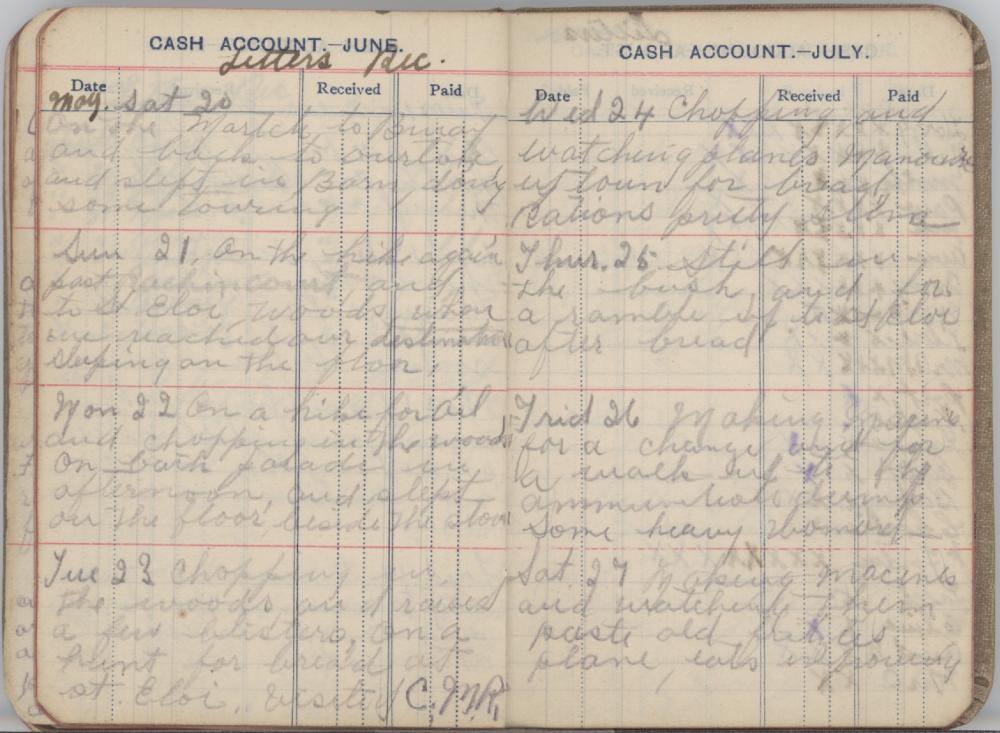 CASH ACCOUNT.—JUNE.
Letters Rec.
Date Received Paid
May. Sat 20
On the March to Bruay
and back to
and slept in Barn doing
some touring
Sun 21, On the hike again
past and
to St Eloi Woods when
we reached our destination
sleping on the floor,
Mon 22 On a hike for oil
and chopping in the woods
On bath parade in
afternoon, and slept
on the floor, beside the stove
Tue 23 Chopping in
the woods and raised
a few blisters, On a
hunt for bread at
st. Eloi, visited C,M,R,
CASH ACCOUNT.—JULY.
Date Received Paid
Wed 24 Chopping and
watching planes
up town for bread
Rations pretty slim
Thur. 25 Still in
the bush, and for
a ramble up to St Eloi
after bread
Frid 26 Making
for a change and for
a walk up to the
ammunition dump
some heavy
Sat 27 Making
and watching them
paste old
plane, eats improving